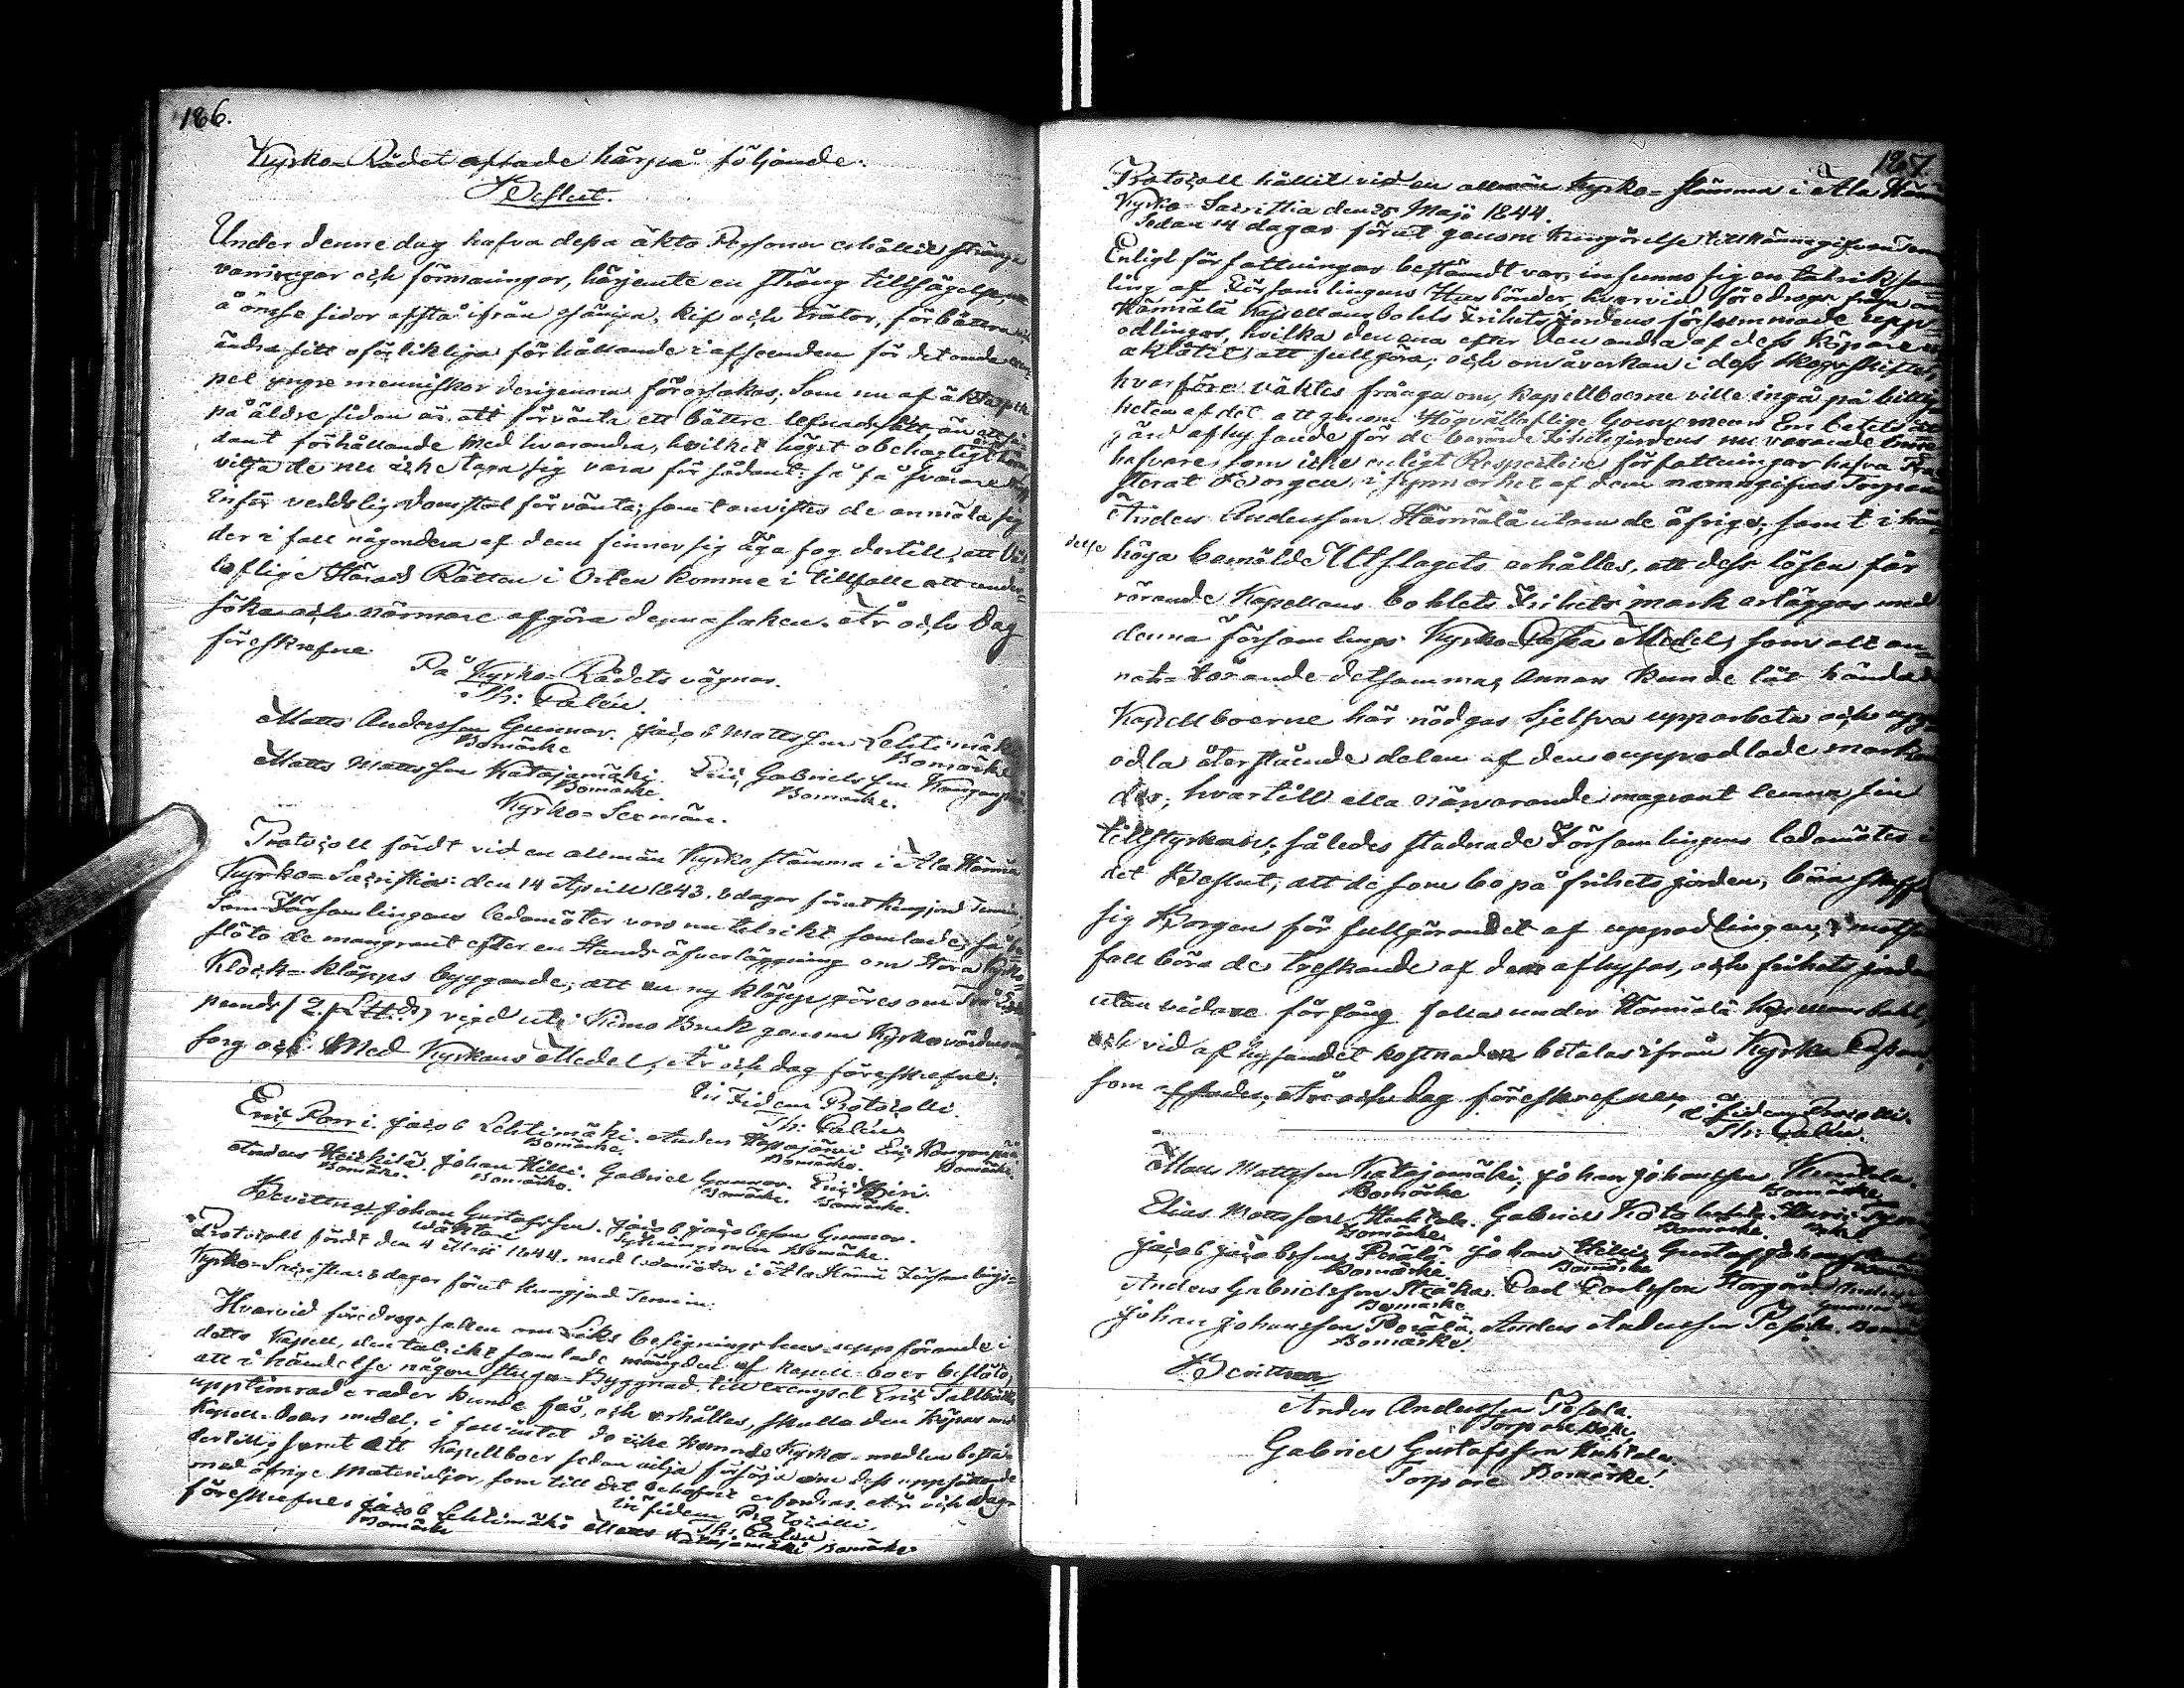 186.
Kyrko-Rådet affade härpå följande.
Beslut.
Under denne dag hafva dessa äkta Personer erhållit stränga
varningar och förmaningar, härjemte en sträng tillsägelse,
å ömse sidor afstå ifrån osämja, kif och trätor, förbättra
ändra sitt oförlikliga förhållande i afseenden för det onda
pel yngre menniskor derigenom förorsakas, Som nu af äkta
på äldre sidan är att förvänta ett bättre lefnadssätt än
dant förhållande med hvarandra, hvilket högst obehagligt
vilja de nu icke taga sig vara för sådant, så få svårare
inför verldslig domstol förvänta; samt anvistes de anmäla sig
der i fall någondera af dem finner sig äga fog dertill, att
loflige Härads Rätten i Orten komme i tillfälle att under-
söka och närmare afgöra denna saken. År och Dag
föreskrefne.
På Kyrko-Rådets vägnar.
Th: Calén.
Matts Andersson Gunnar. Jacob Mattsson Lehtimäki
Bomärke Bomärke
Matts Mattsson Katajamäki. Eric Gabrielsson Kangas
Bomärke. Bomärke.
Kyrko-Sexmän.
Protocoll fördt vid en allmän Kyrkostämma i Ala Härmä
Kyrko-Sacristia: den 14 April 1843. 8 dagar förut kungjord Termin,
Som Församlingens ledamöter voro nu talrikt samlade, så be-
slöto de mangrant efter en Stunds öfverläggning om Stora Kyrko
Klock-kläpps byggande, att en ny kläpp göres om Två
punds (2. Lttd.) vigd uti Kimo Bruk genom Kyrkovärdens
sorg och Med Kyrkans Medel, År och dag föreskrefne:
In Fidem Protocolli.
Th: Calén
Eric Porri. Jacob Lehtimäki. Anders Eric Kangas
Bomärke. Bomärke. Bomärke.
Anders Heikkilä. Johan Hilli. Gabriel Gunnar. Eric
Bomärke. Bomärke. Bomärke. Bomärke.
Bevittna: Johan Gustafsson. Jacob Jacobsson Gunnar.
Wäktare Bomärke.
Protocoll fördt den 4 Maji 1844. med ledamöter i Ala Härmä Församlings-
Kyrko-Sacristia: 8 dagar förut kungjord Termin:
Hvarvid föredrogs saken om Liks besigningshus uppförande i
detta Kapell, den talrikt samlade mängden af Kapell-boer beslöto,
att i händelse någon stuga-Byggnad till exempel Eric Tallbacka
upptimrade rader kunde fås, och erhålles, skulle den köpas med
Kapell-boers medel, i fall intet de icke kunnde Kyrko-medlen bestå
dertill, samt att Kapellboer sedan vilja försörja om dess uppsättande
med öfrige Materialjer, som till det behofvet erfordras. År och dag
föreskrefne. in fidem Protocolli.
Th: Calén
Jacob Lehtimäki Matts Katajamäki Bomärke
Bomärke
187.
Protocoll hållit vid en allmän Kyrko-stämma i Ala Härmä
Kyrko-Sacristia den 25 Maji 1844.
Sedan 14 dagar förut genom kungörelse tillkännagifven Termin
Enligt författningar bestämdt var, infunno sig en talrik sam-
ling af Församlingens Husbönder, hvarvid föredrogs fråga om
Härmälä Kapellansbohls Frihetsjordens försummade upp-
odlingar, hvilka den ena efter den andra af dess köpare
aklåtit att fullgöra, och om åverkan i dess skogsskiftet,
hvarföre väktes frågan om, Kapellboerne ville ingå på billig
heten af det att genom Högvällofliga Gouverneurs Embetets
gärd afhysande för de berörde Frihetsjordens nu varande inne-
hafvare, som icke enligt Respective författningar hafva Præ-
sterat Borgen, i synnerhet af dem namngifne Torparen
Anders Andersson Härmälä utom de öfrige, samt i hän-
delse höga bemälde Utslagets erhålles, att dess lösen för
rörande Kapellans bohlets Frihets mark erlägges med
denna församlings Kyrko-Cassa Medel, som alt an-
nat-rörande detsamma, annars kunde lät hända
Kapellboerne här nödgas Sjelfva upparbeta och upp
odla återstående delen af den ouppodlade marken
der; hvartill alla närvarande magrant lemna sin
tillstyrkan; således stadnade Församlingens ledamöter i
det Beslut, att de som bo på frihets jorden, böra skaffa
sig Borgen för fullgörandet af uppodlingen, i motsatt
fall böra de treskande af dem afhysas, och frihets jorden
utan vidare förfång falla under Härmälä Kapellansbohl,
och vid afhysandet kostnaden betalas ifrån Kyrko Cassan,
som affades, År och dag föreskrefne,
in fidem Protocolli.
Th: Calén.
Matts Mattsson Katajamäki, Johan Johansson
Bomärke Bomärke
Elias Mattsson Huhtala. Gabriel
Bomärke Bomärke.
Jacob Jacobsson Perälä Johan Hilli, Gustaf Johansson
Bomärke. Bomärke
Anders Gabrielsson Carl Carlsson Anders
Bomärke Gunnar
Johan Johansson Perälä. Anders Andersson Pesola. Bomärke
Bomärke
Bevittna
Anders Andersson Pesola.
Torpare
Gabriel Gustafsson Huhtala
Torpare Bomärke.